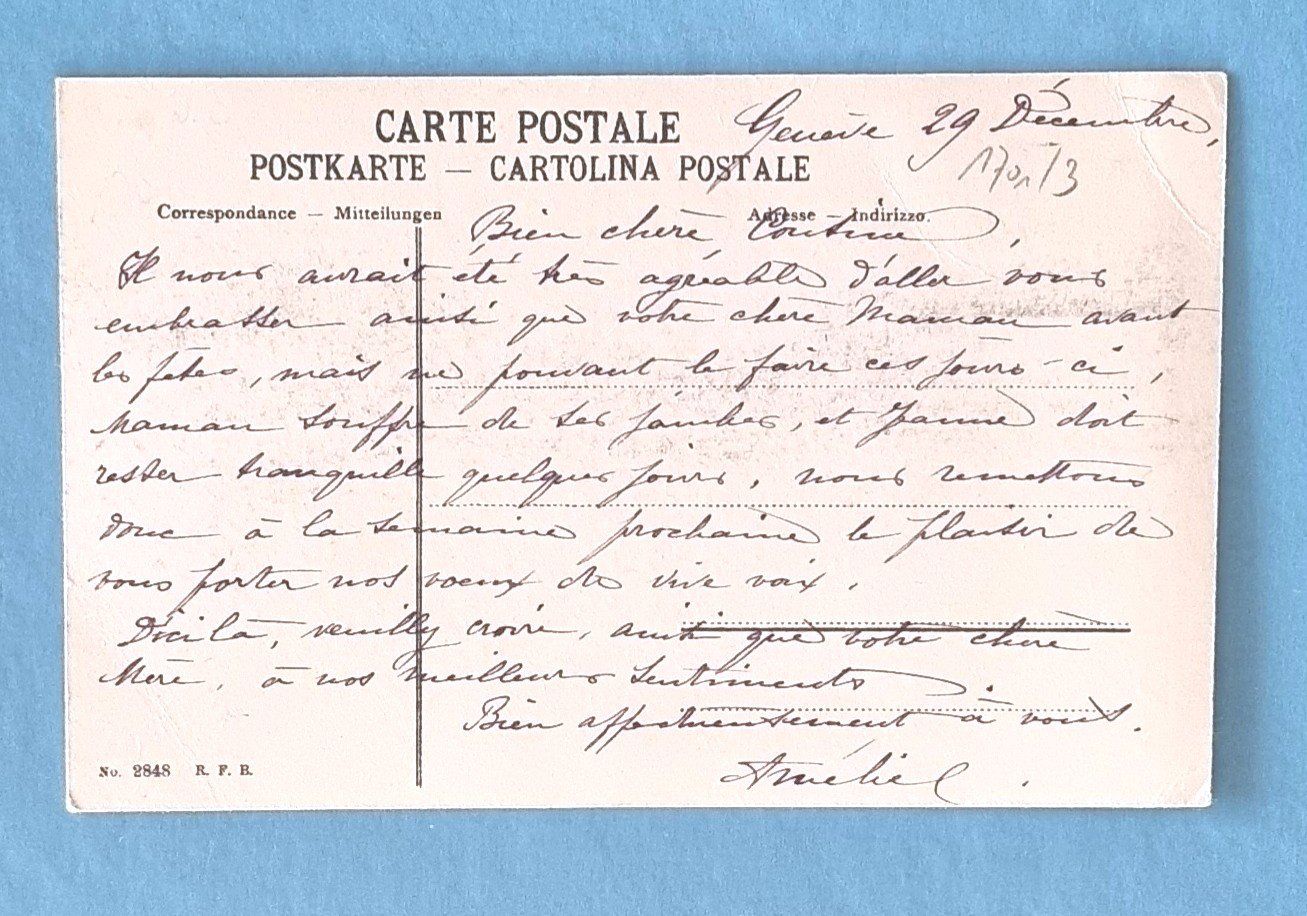 CARTE POSTALE
Genève 29 Décembre,
POSTKARTE — CARTOLINA POSTALE
Correspondance — Mitteilungen
Adresse — Indirizzo.
Bien chère Cousine,
Il nous aurait été très agréable d'aller vous
embrasser ainsi que votre chère Maman avant
les fêtes, mais ne pouvant le faire ces jours-ci,
Maman souffre de ses jambes, et Jeanne doit
rester tranquille quelques jours, nous remettons
donc à la semaine prochaine le plaisir de
vous porter nos voeux de vive voix.
D'ici là, veuillez croire, ainsi que votre chère
Mère, à nos meilleurs sentiments.
Bien affectueusement à vous.
Amélie
No. 2848 R. F. B.